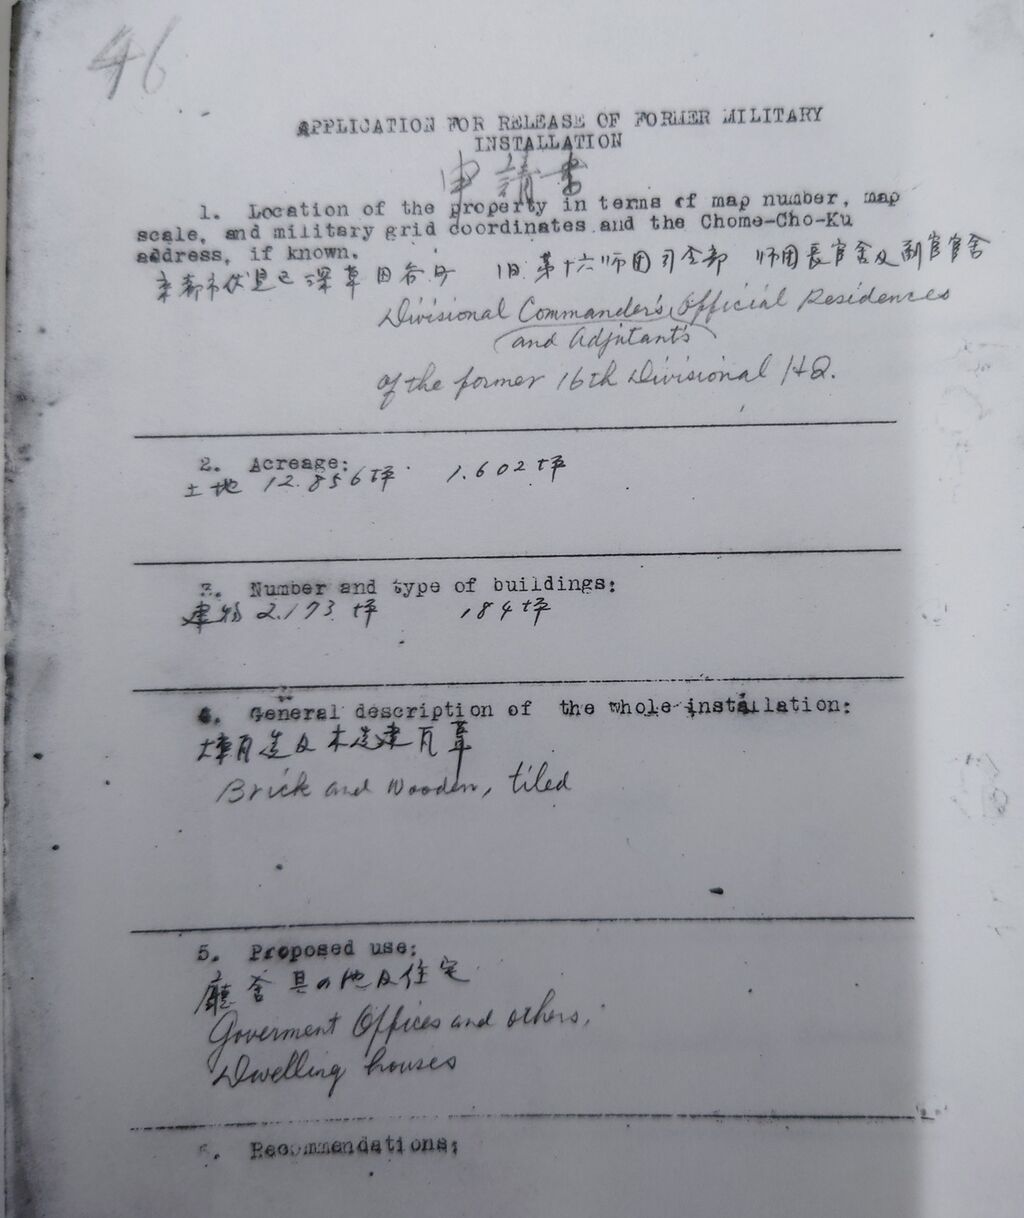 46
APPLICATION FOR RELEASE OF FORMER MILITARY
INSTALLATION
申請書
1. Location of the property in terms of map number, map
scale, and military grid coordinates and the Chome-Cho-Ku
address, if known.
京都市伏見区深草田谷町 旧第十六師団司令部 師団長官舎及副官官舎
Divisional Commander's Official Residences
and Adjutant's
of the former 16th Divisional HQ.
2. Acreage:
土地 12.856坪 1.602坪
3. Number and type of buildings:
建物 2.173坪 184坪
4. General description of the whole installation:
煉瓦造及木造建瓦葺
Brick and Wooden, tiled
5. Proposed use:
廳舎其の他及住宅
Goverment Offices and others,
Dwelling houses
6. Recommendations: